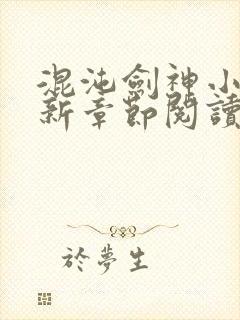 混沌劍神小
新章節閱讀
於夢生